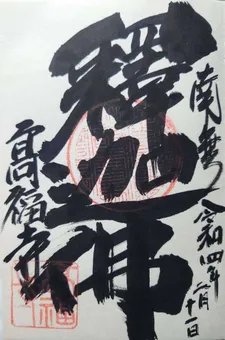 南無
令和四年
二月
十一日
釋迦佛
高福寺